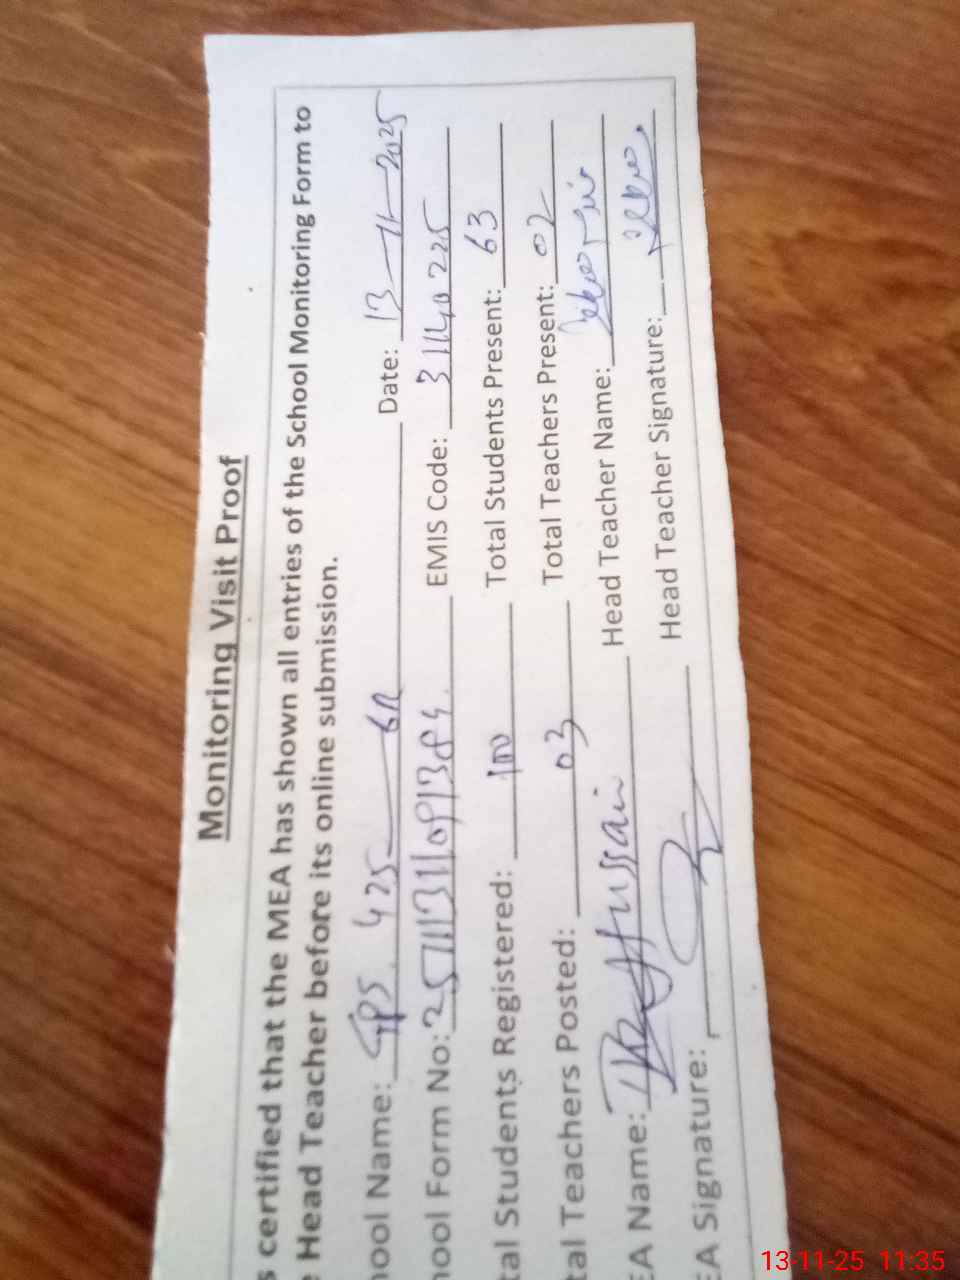 Monitoring Visit Proof
s certified that the MEA has shown all entries of the School Monitoring Form to
e Head Teacher before its online submission.
hool Name: GPS 425 6R Date: 13-11-2025
hool Form No: EMIS Code: 31140225
tal Students Registered: 100 Total Students Present: 63
tal Teachers Posted: 03 Total Teachers Present: 02
EA Name: Hussain Head Teacher Name:
EA Signature: Head Teacher Signature:
13-11-25 11:35